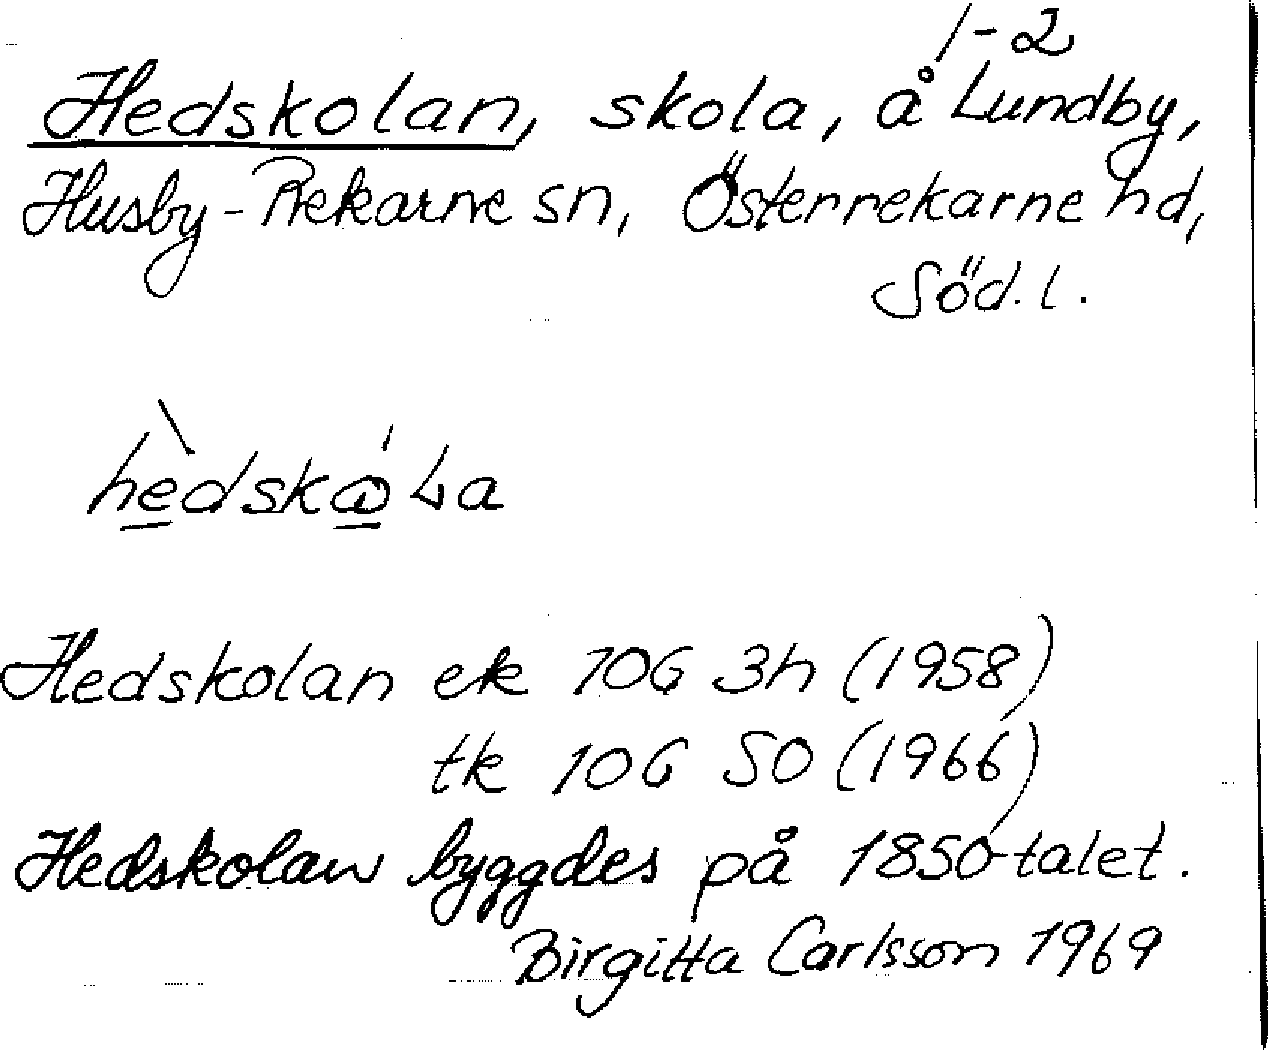 1-2
Hedskolan, skola, å Lundby,
Husby-Rekarne sn, Österrekarne hd,
Söd. l.
hèdskà́La
Hedskolan ek 10G 3h (1958)
tk 10G SO (1966)
Hedskolan byggdes på 1850-talet.
Birgitta Carlsson 1969